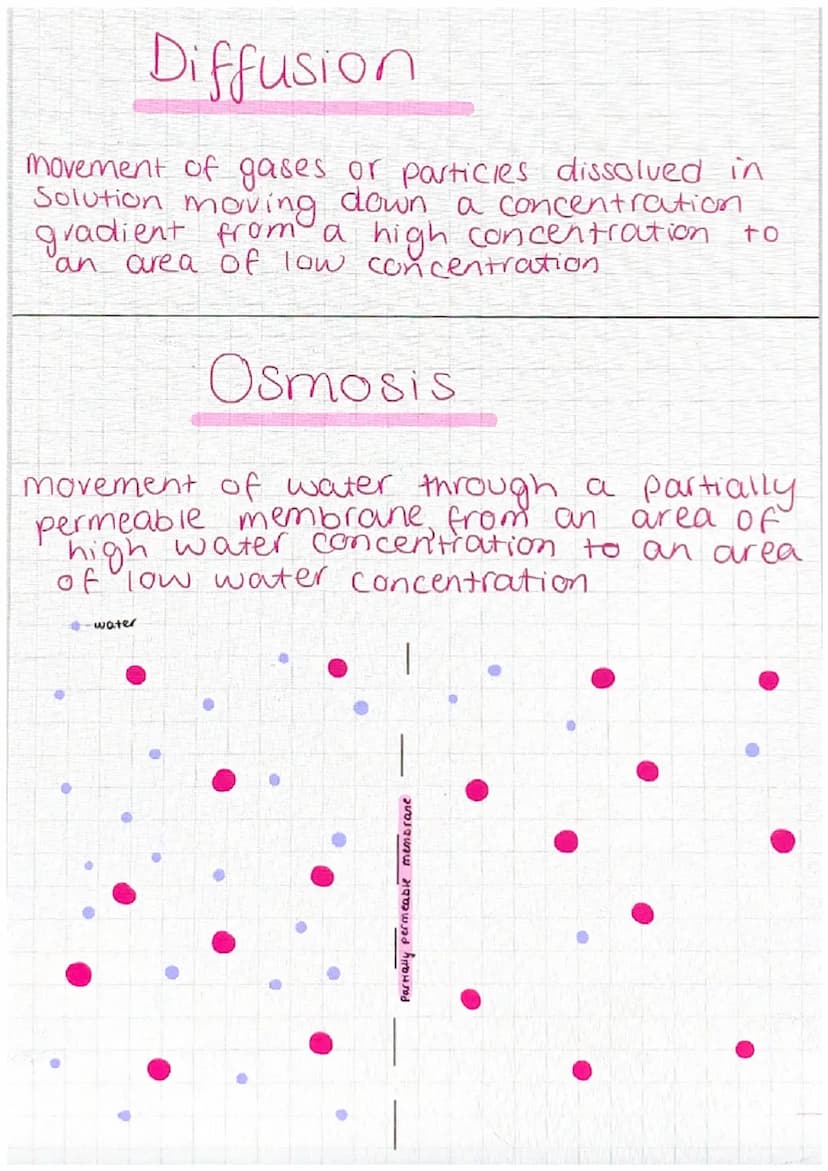 Diffusion
movement of gases or particles dissolved in
solution moving down a concentration
gradient from a high concentration to
an area of low concentration
Osmosis
movement of water through a partially
permeable membrane, from an area of
high water concentration to an area
of low water concentration
- water
Partially permeable membrane